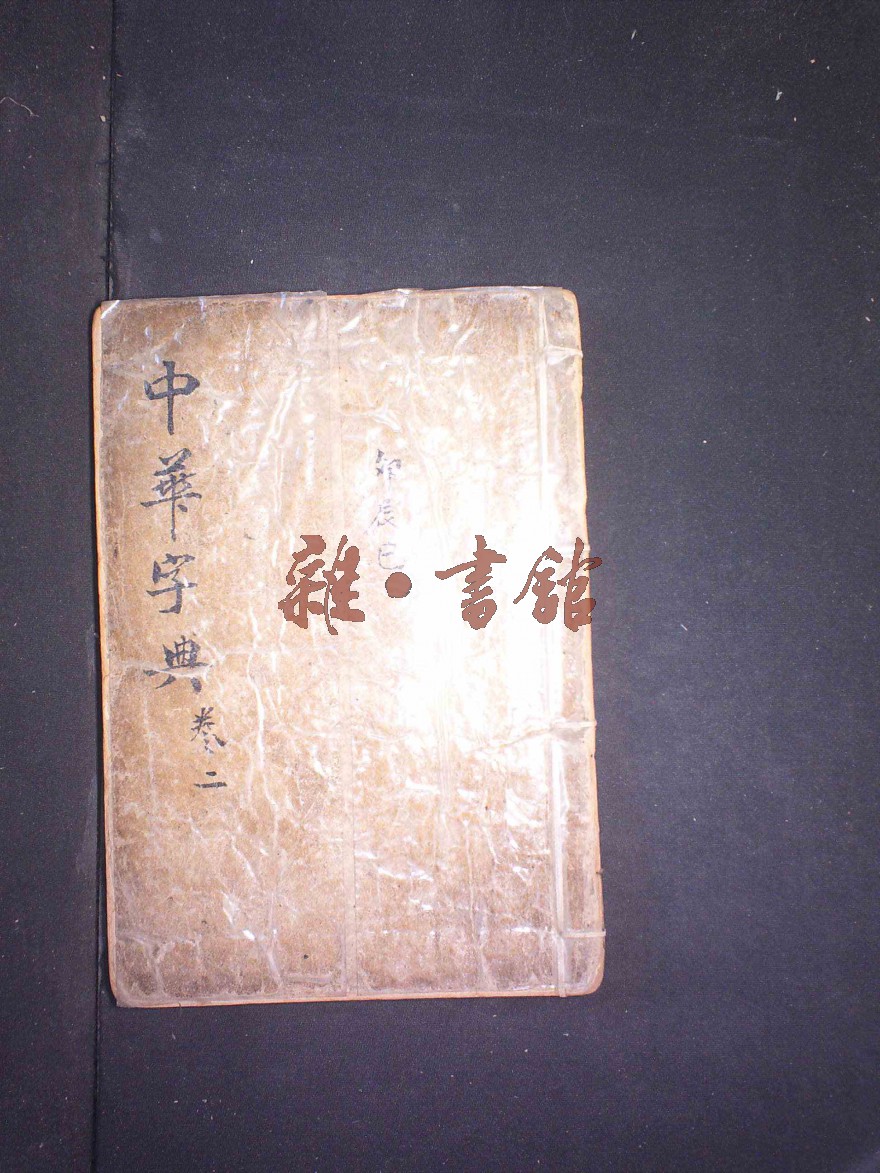 卯辰巳
中華字典
卷二
雜·書館